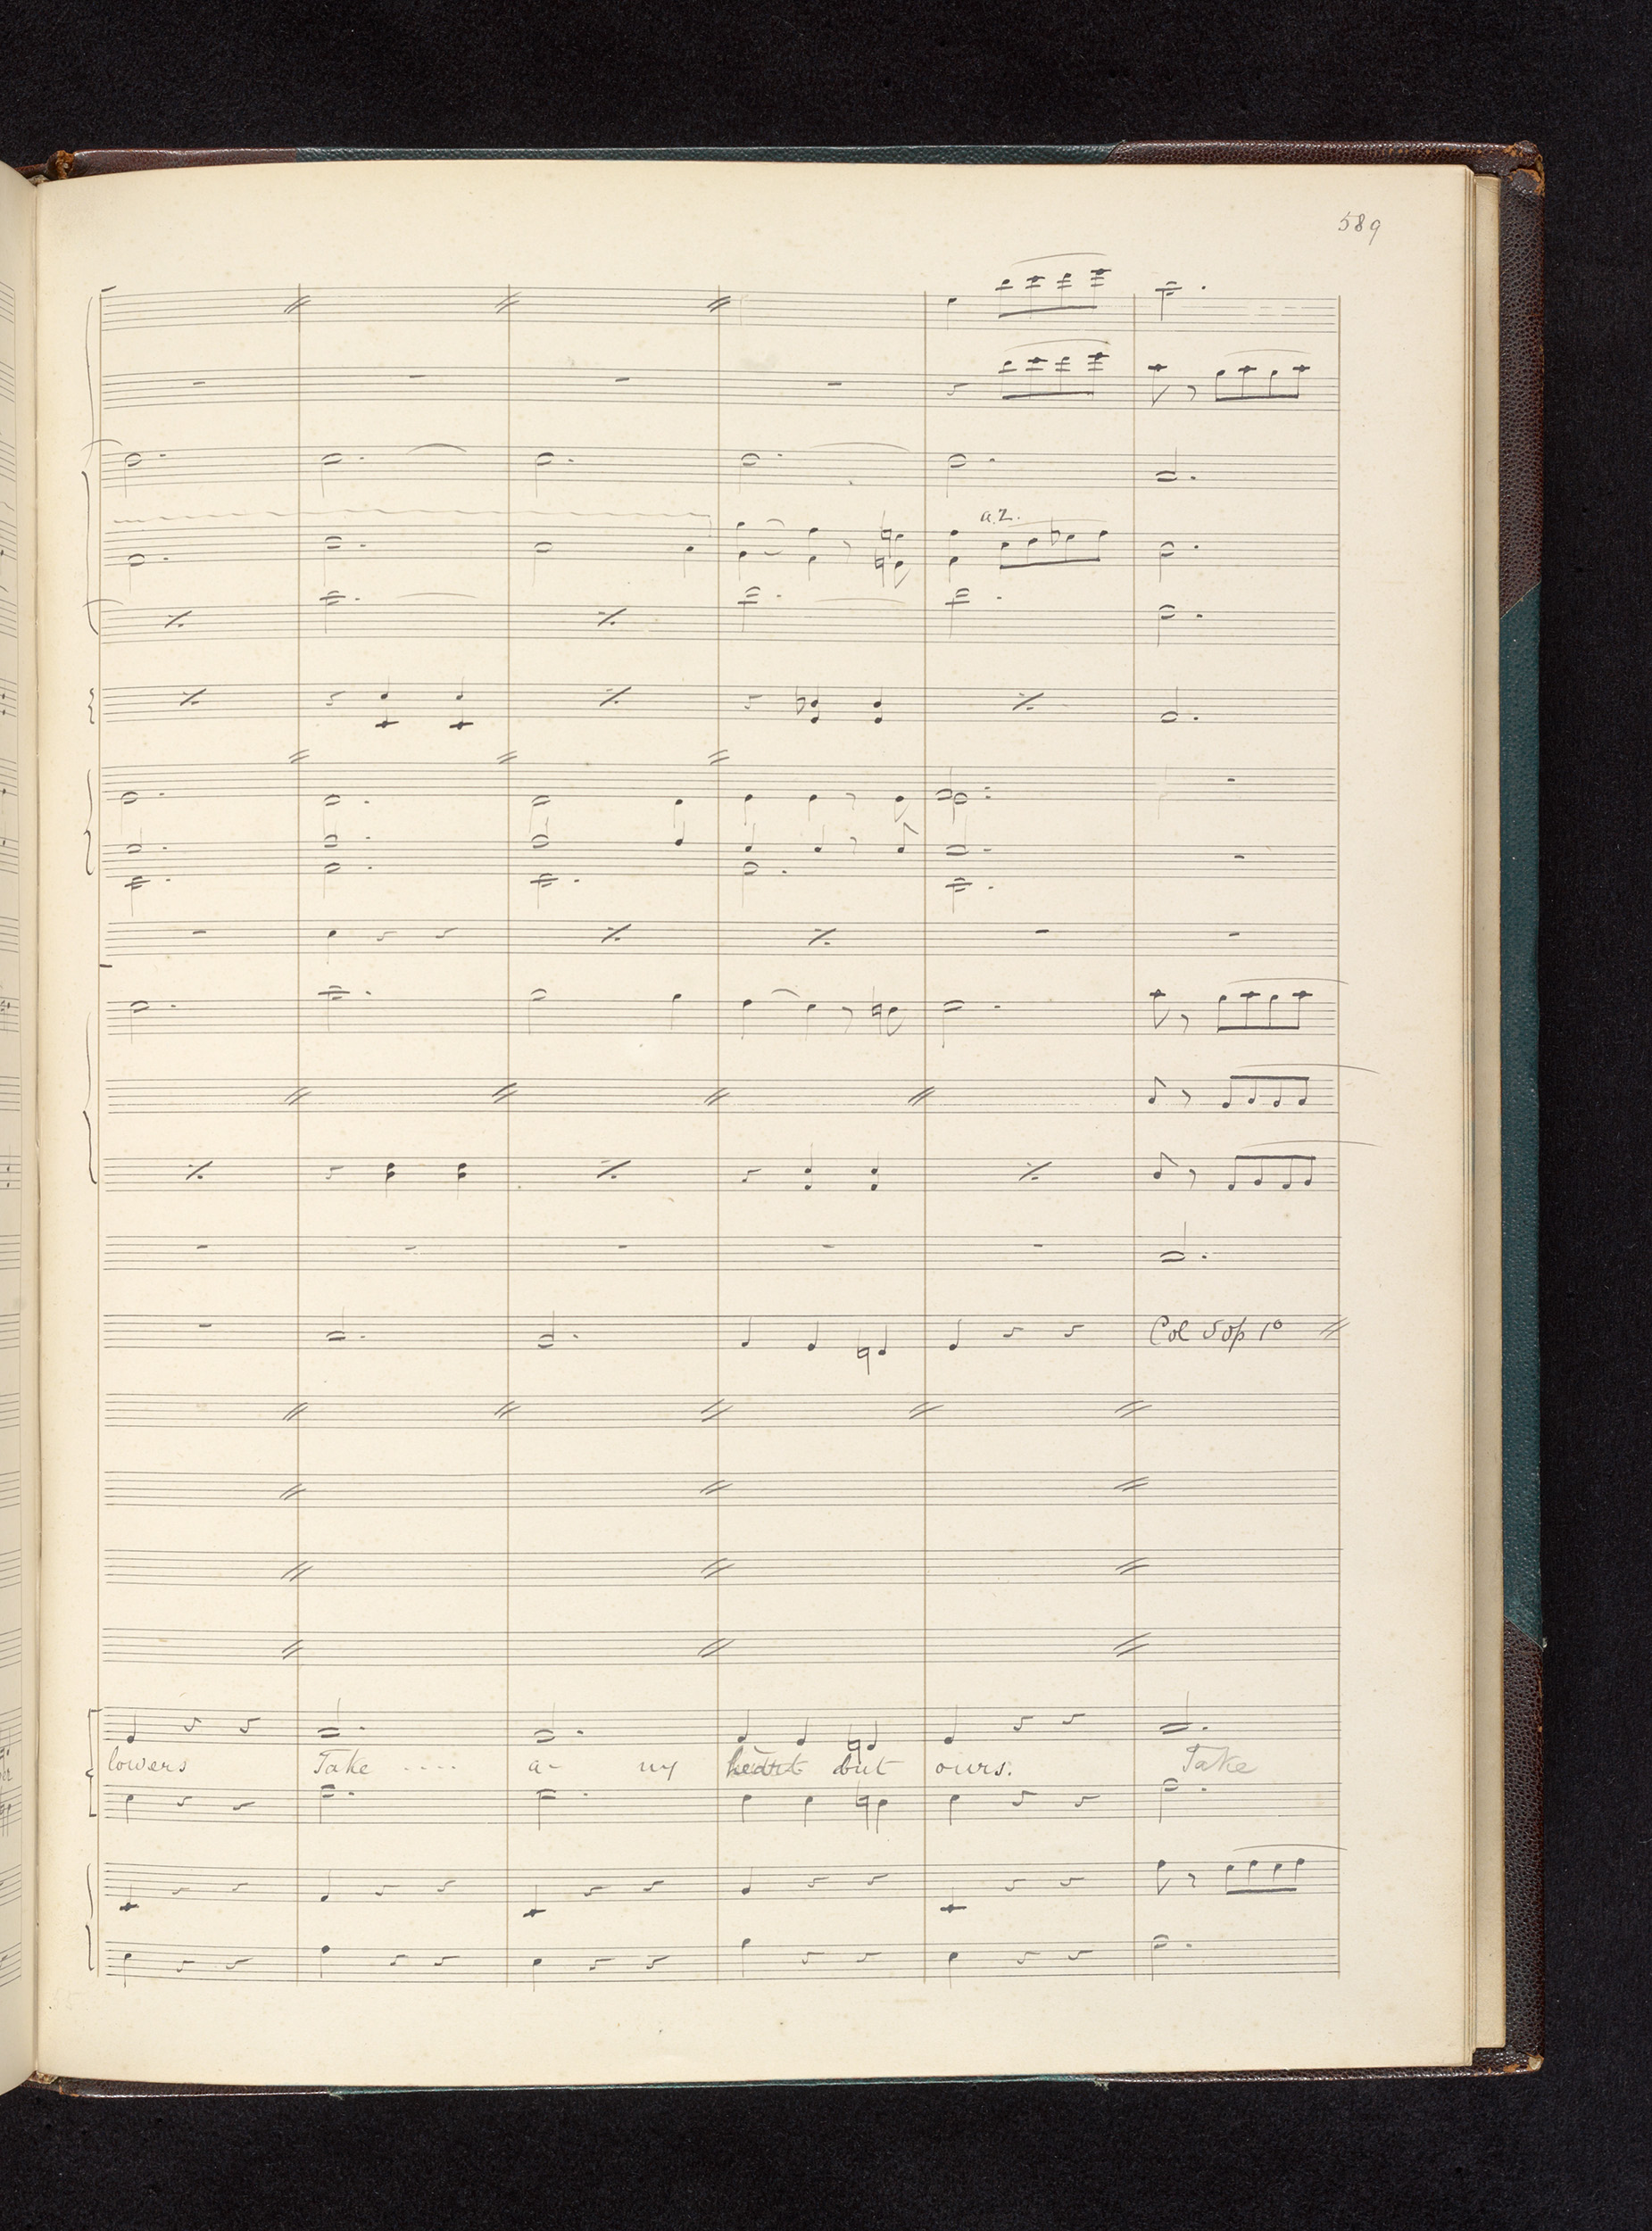 589
a 2.
Col Sop 1º
lowers Take .... a- ny heart but ours. Take